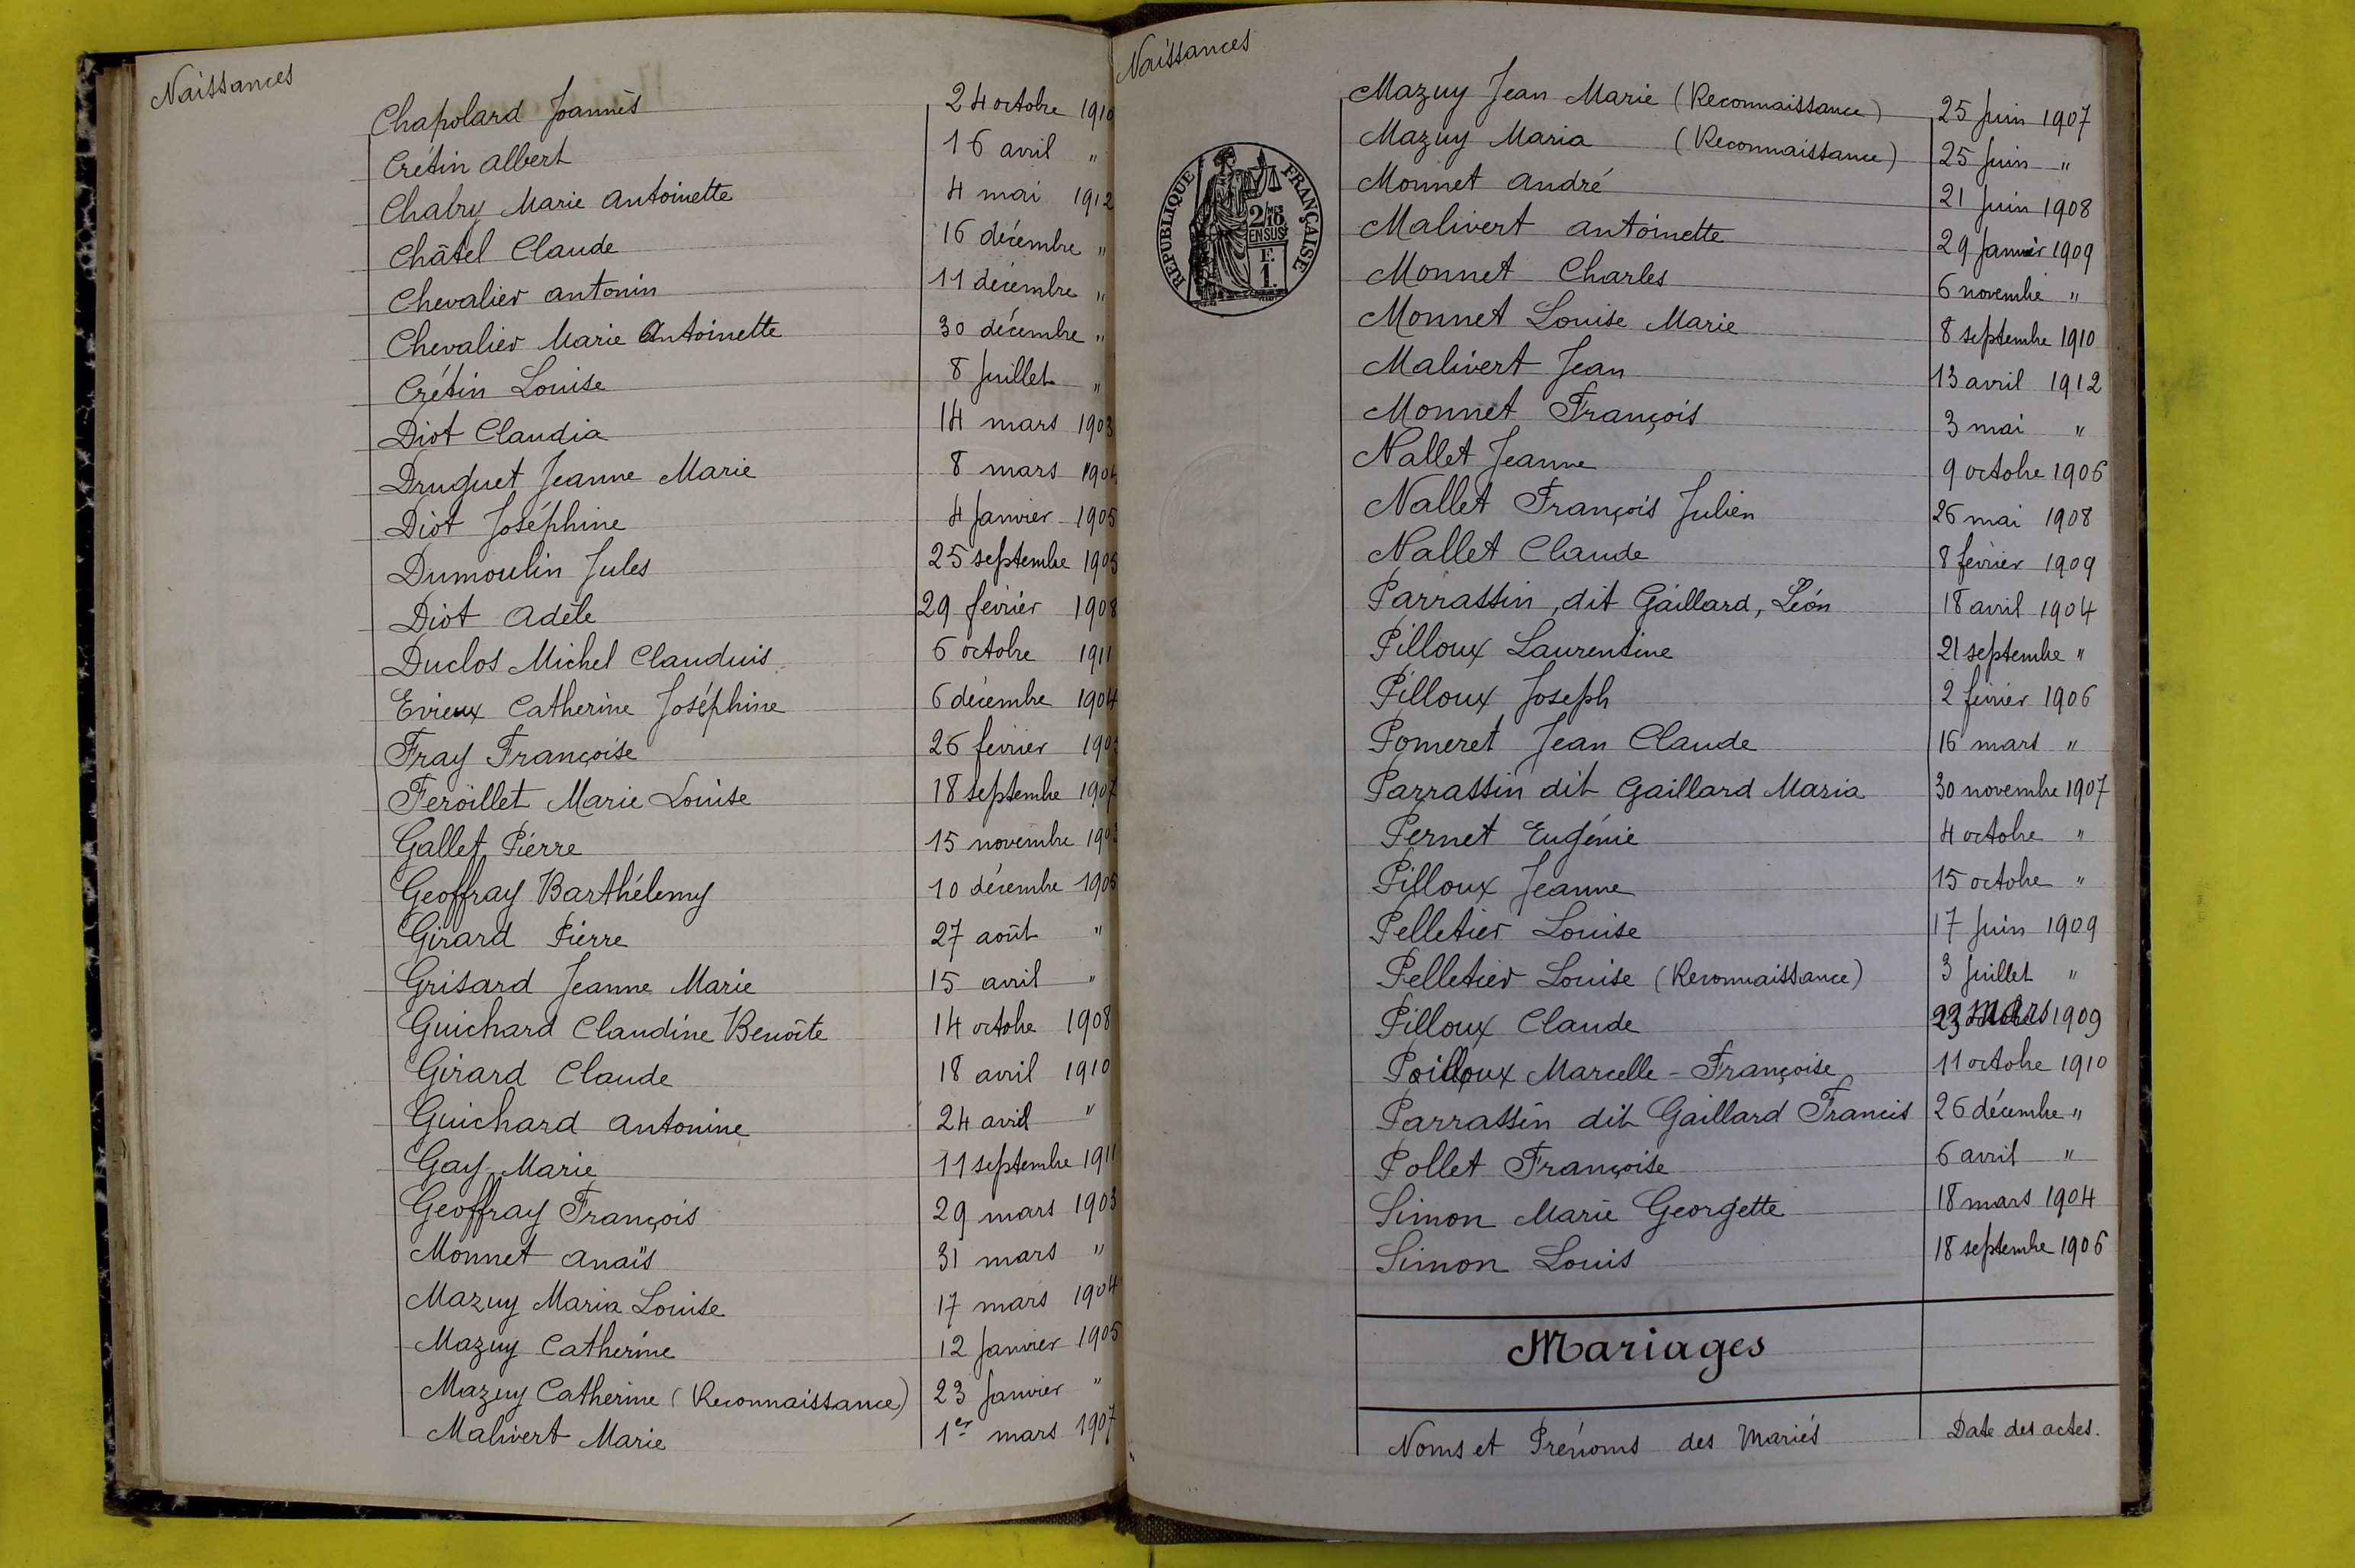 Naissances
Chapolard Joannès 24 octobre 1910
Crétin Albert 16 avril "
Chabry Marie Antoinette 4 mai 1912
Châtel Claude 16 décembre "
Chevalier Antonin 11 décembre "
Chevalier Marie Antoinette 30 décembre "
Crétin Louise 8 Juillet "
Diot Claudia 14 mars 1903
Druguet Jeanne Marie 8 mars 1904
Diot Joséphine 4 Janvier 1905
Dumoulin Jules 25 septembre 1905
Diot Adèle 29 février 1908
Duclos Michel Claudius 6 octobre 1911
Evieux Catherine Joséphine 6 décembre 1904
Fray Françoise 26 février
Feroillet Marie Louise 18 septembre 1907
Gallet Pierre 15 novembre
Geoffray Barthélemy 10 décembre 1905
Girard Pierre 27 août "
Grisard Jeanne Marie 15 avril "
Guichard Claudine Benoîte 14 octobre 1908
Girard Claude 18 avril 1910
Guichard Antonine 24 avril "
Gay Marie 11 septembre 1911
Geoffray François 29 mars 1903
Monnet Anaïs 31 mars "
Mazuy Maria Louise 17 mars 1904
Mazuy Catherine 12 Janvier 1905
Mazuy Catherine (Reconnaissance) 23 Janvier "
Malivert Marie 1er mars 1907
Naissances
RÉPUBLIQUE FRANÇAISE
2/10
EN SUS
F.
1.
Mazuy Jean Marie (Reconnaissance) 25 Juin 1907
Mazuy Maria (Reconnaissance) 25 Juin "
Monnet André 21 Juin 1908
Malivert Antoinette 29 Janvier 1909
Monnet Charles 6 novembre "
Monnet Louise Marie 8 septembre 1910
Malivert Jean 13 avril 1912
Monnet François 3 mai "
Nallet Jeanne 9 octobre 1906
Nallet François Julien 26 mai 1908
Nallet Claude 8 février 1909
Parrassin, dit Gaillard, Léon 18 avril 1904
Pilloux Laurentine 21 septembre "
Pilloux Joseph 2 février 1906
Pomeret Jean Claude 16 mars "
Parrassin dit Gaillard Maria 30 novembre 1907
Pernet Eugénie 4 octobre "
Pilloux Jeanne 15 octobre "
Pelletier Louise 17 Juin 1909
Pelletier Louise (Reconnaissance) 3 Juillet "
Pilloux Claude 23 mars 1909
Poilloux Marcelle-Françoise 11 octobre 1910
Parrassin dit Gaillard Francis 26 décembre "
Pollet Françoise 6 avril "
Simon Marie Georgette 18 mars 1904
Simon Louis 18 septembre 1906
Mariages
Noms et Prénoms des Mariés Date des actes.